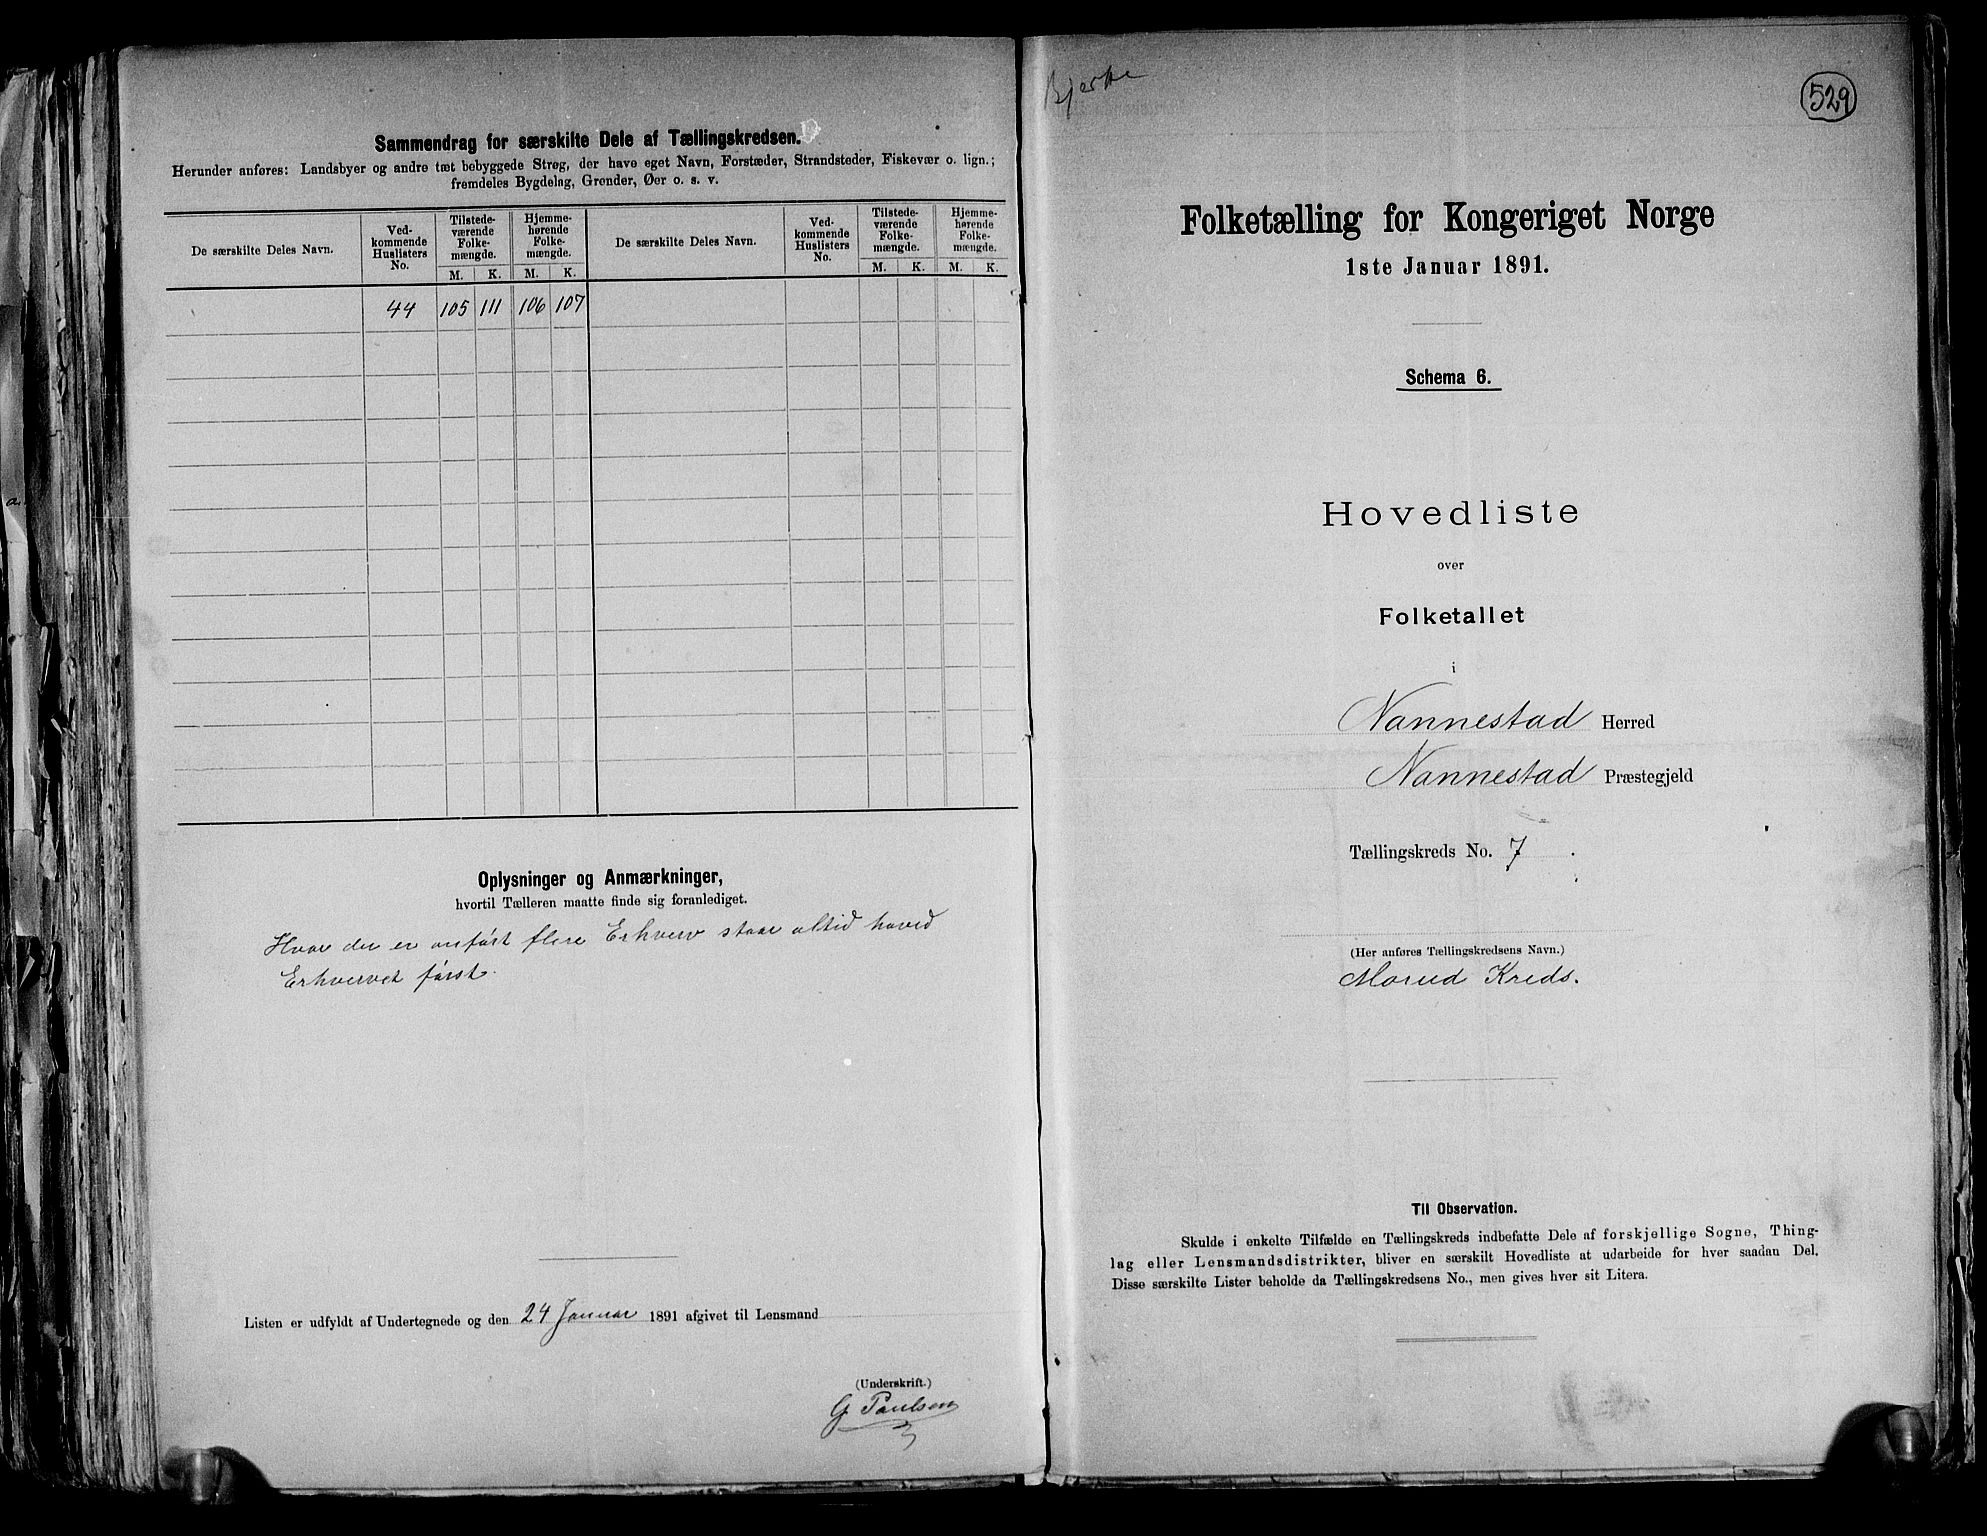 Sammendrag for særskilte Dele af Tællingskredsen.
Herunder anføres: Landsbyer og andre tæt bebyggede Strøg, der have eget Navn, Forstæder, Strandsteder, Fiskevær o. lign.;
fremdeles Bygdelag, Grender, Øer o. s. v.
De særskilte Deles Navn.
Ved-
kommende
Huslisters
No.
Tilstede-
værende
Folke-
mængde.
M. K.
Hjemme-
hørende
Folke-
mængde.
M. K.
De særskilte Deles Navn.
Ved-
kommende
Huslisters
No.
Tilstede-
værende
Folke-
mængde.
M. K.
Hjemme-
hørende
Folke-
mængde.
M. K.
44 105 111 106 107
Oplysninger og Anmærkninger,
hvortil Tælleren maatte finde sig foranlediget.
Hvor der er anført flere Erhverv staar altid hoved
Erhvervet først.
Listen er udfyldt af Undertegnede og den 24 Januar 1891 afgivet til Lensmand
(Underskrift.)
G Paulsen
Bjerke
529
Folketælling for Kongeriget Norge
1ste Januar 1891.
Schema 6.
Hovedliste
over
Folketallet
i
Nannestad Herred
Nannestad Præstegjeld
Tællingskreds No. 7.
(Her anføres Tællingskredsens Navn.)
Morud Kreds.
Til Observation.
Skulde i enkelte Tilfælde en Tællingskreds indbefatte Dele af forskjellige Sogne, Thing-
lag eller Lensmandsdistrikter, bliver en særskilt Hovedliste at udarbeide for hver saadan Del.
Disse særskilte Lister beholde da Tællingskredsens No., men gives hver sit Litera.